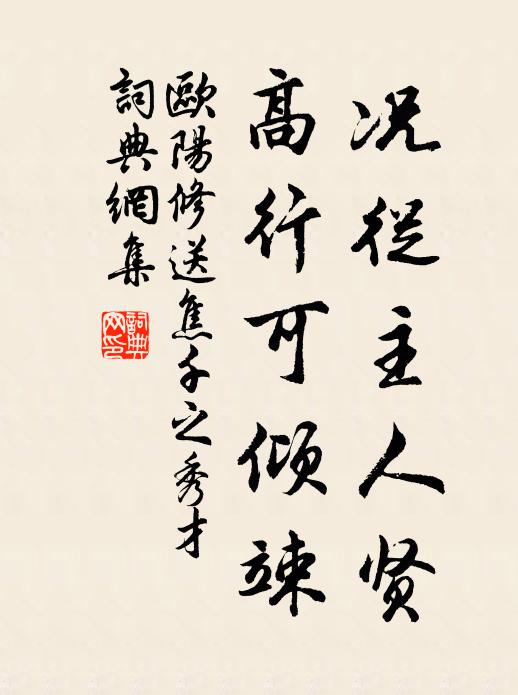 况從主人贤
高行可倾竦
歐陽修送焦千之秀才
詞典網集
詞典
网印